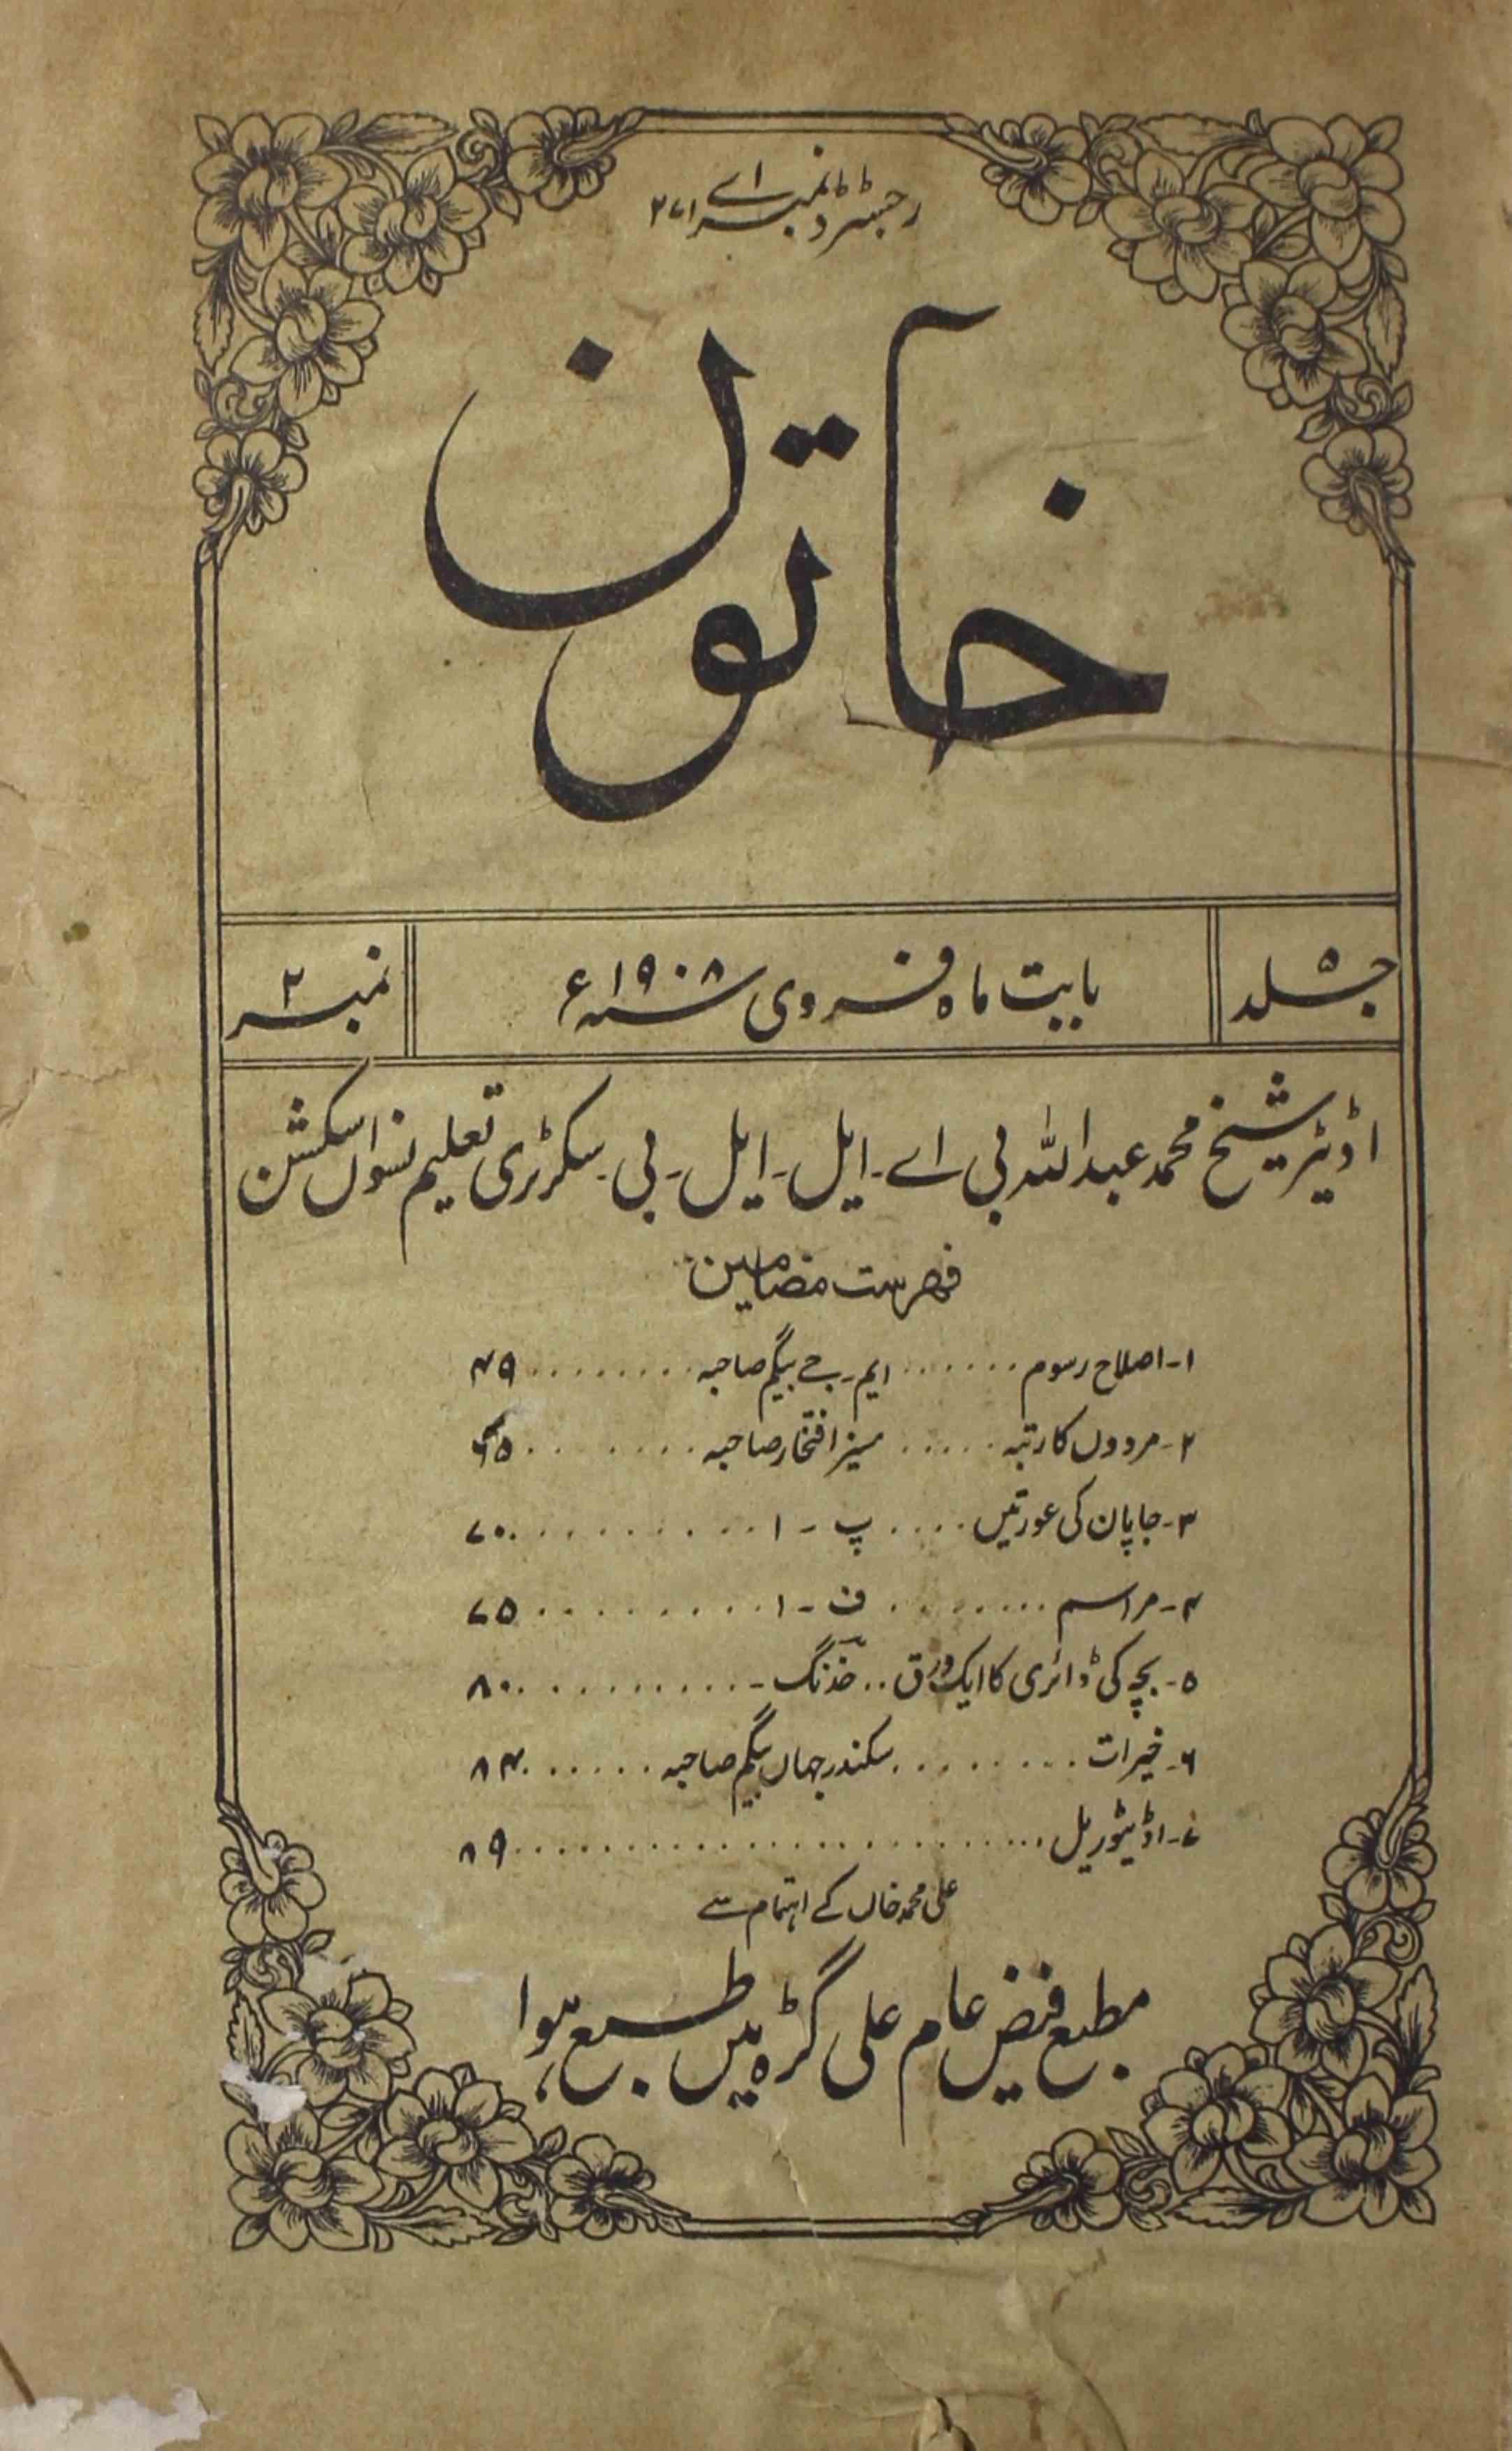 رجسٹرڈ نمبر اے ۲۷۱
خاتون
جلد ۵
بابت ماہ فروری سنہ ۱۹۰۸ء
نمبر ۲
اڈیٹر شیخ محمد عبداللہ بی اے۔ ایل۔ ایل۔ بی۔ سکرٹری تعلیم نسواں سکشن
فہرست مضامین
۱۔ اصلاح رسوم ...... ایم۔ جے بیگم صاحبہ ........ ۴۹
۲۔ مردوں کا رتبہ ...... مسیز افتخار صاحبہ ........ ۶۵
۳۔ جاپان کی عورتیں .... پ ۔ ا .......... ۷۰
۴۔ مراسم ........ ف ۔ ا ......... ۷۵
۵۔ بچہ کی ڈائری کا ایک ورق .. خدنگ ۔ .......... ۸۰
۶۔ خیرات ........ سکندر جہاں بیگم صاحبہ ...... ۸۴
۷۔ اڈیٹوریل ...................... ۸۹
علی محمد خاں کے اہتمام سے
مطبع فیض عام علی گڑہ میں طبع ہوا